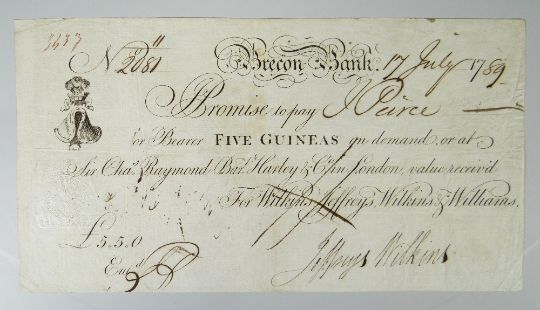 Brecon Bank. 17 July 1789
I Promise to pay J Peirce
or Bearer FIVE GUINEAS on demand, or at
Sir Chas. Raymond Bart. Harley & Co. in London, value receiv'd
For Wilkins Jeffreys Wilkins & Williams.
£5.5.0
Jeffreys Wilkins
Ent.d